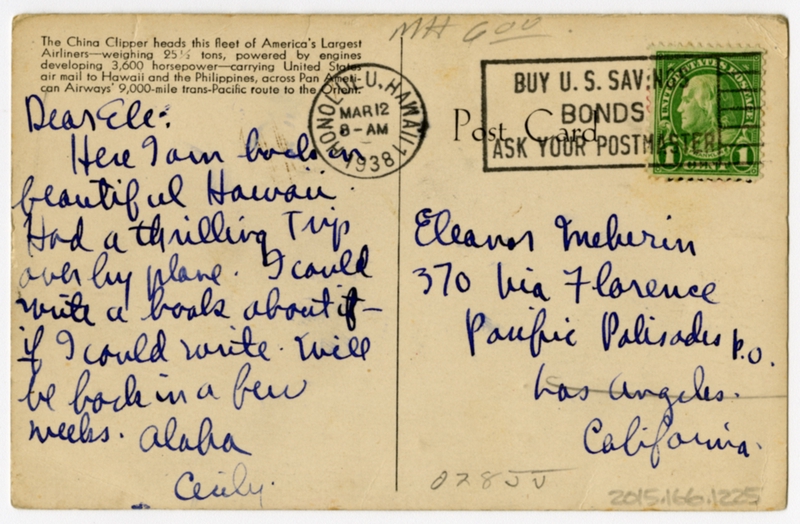 MH 600
The China Clipper heads this fleet of America's Largest
Airliners—weighing 25½ tons, powered by engines
developing 3,600 horsepower—carrying United States
air mail to Hawaii and the Philippines, across Pan Ameri-
can Airways' 9,000-mile trans-Pacific route to the Orient.
HONOLULU, HAWAII 1
MAR 12
8-AM
1938
BUY U.S. SAVINGS
BONDS
ASK YOUR POSTMASTER
UNITED STATES POSTAGE
1 CENT 1
Post Card
Dear Ele:
Here I am back in
beautiful Hawaii.
Had a thrilling Trip
over by plane. I could
write a book about it—
if I could write. Will
be back in a few
weeks. Aloha
Cecily.
Eleanor
370 Via Florence
Pacific Palisades P.O.
Los Angeles.
California.
028JJ
2015.166.1225